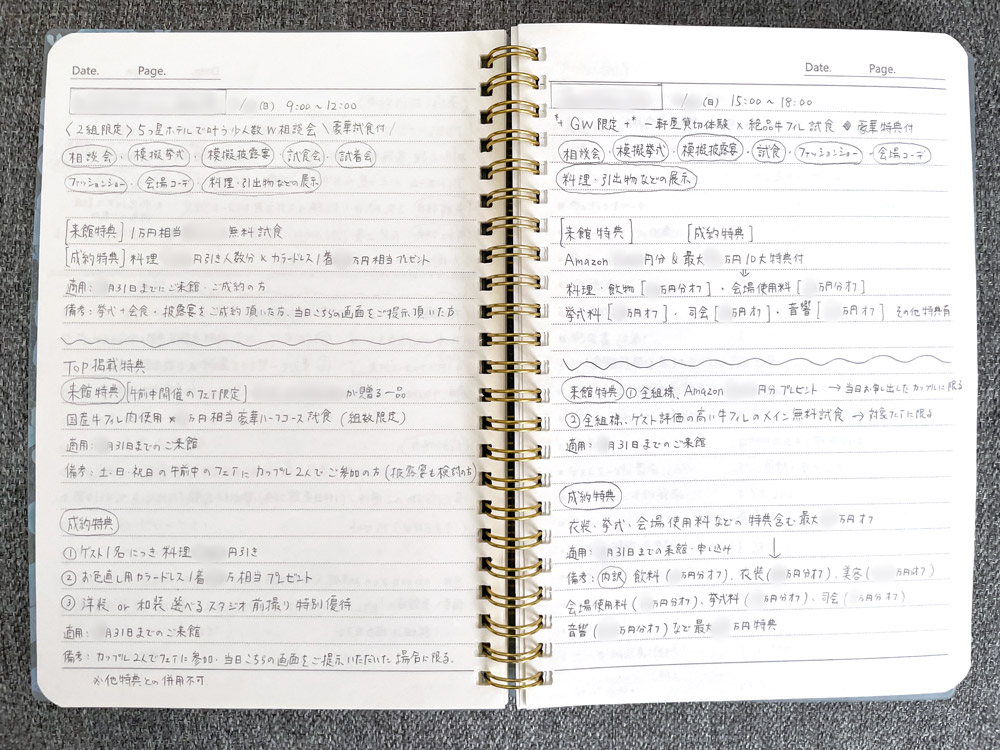 Date. Page.
/ (日) 9:00〜12:00
〈2組限定〉5つ星ホテルで叶う少人数W相談会 \豪華試食付/
相談会・模擬挙式・模擬披露宴・試食会・試着会
ファッションショー・会場コーデ・料理・引出物などの展示
[来館特典] 1万円相当 無料試食
[成約特典] 料理 円引き人数分×カラードレス1着 万円相当プレゼント
適用: 月31日までにご来館・ご成約の方
備考:挙式+会食・披露宴をご成約頂いた方、当日こちらの画面をご提示頂いた方
TOP掲載特典
来館特典 [午前中開催のフェア限定] が贈る一品
国産牛フィレ肉使用★ 万円相当豪華ハーフコース試食(組数限定)
適用: 月31日までのご来館
備考:土・日・祝日の午前中のフェアにカップル2人でご参加の方(披露宴も検討の方)
成約特典
①ゲスト1名につき 料理 円引き
②お色直し用カラードレス1着 万相当プレゼント
③洋装 or 和装 選べるスタジオ前撮り特別優待
適用: 月31日までのご来館
備考:カップル2人でフェアに参加・当日こちらの画面をご提示いただいた場合に限る。
※他特典との併用不可
Date. Page.
/ (日) 15:00〜18:00
*+ GW限定 +* 一軒屋貸切体験×絶品牛フィレ試食◆豪華特典付
相談会・模擬挙式・模擬披露宴・試食・ファッションショー・会場コーデ
料理・引出物などの展示
[来館特典] [成約特典]
Amazon 円分&最大 万円10大特典付
↓
料理・飲物[ 万円分オフ]・会場使用料[ 万円分オフ]
挙式料[ 万円オフ]・司会[ 万円オフ]・音響[ 万円オフ] その他特典有
来館特典 ①全組様、Amazon 円分プレゼント → 当日お申し出したカップルに限る
②全組様、ゲスト評価の高い牛フィレのメイン無料試食→対象フェアに限る
適用: 月31日までのご来館
成約特典
衣装・挙式・会場使用料などの特典含む最大 万円オフ
適用: 月31日までの来館・申し込み ↓
備考:内訳 飲料( 万円分オフ)、衣装( 万円分オフ)、美容( 万円オフ)
会場使用料( 万円分オフ)、挙式料( 万円分オフ)、司会( 万円分オフ)
音響( 万円分オフ)など最大 万円特典